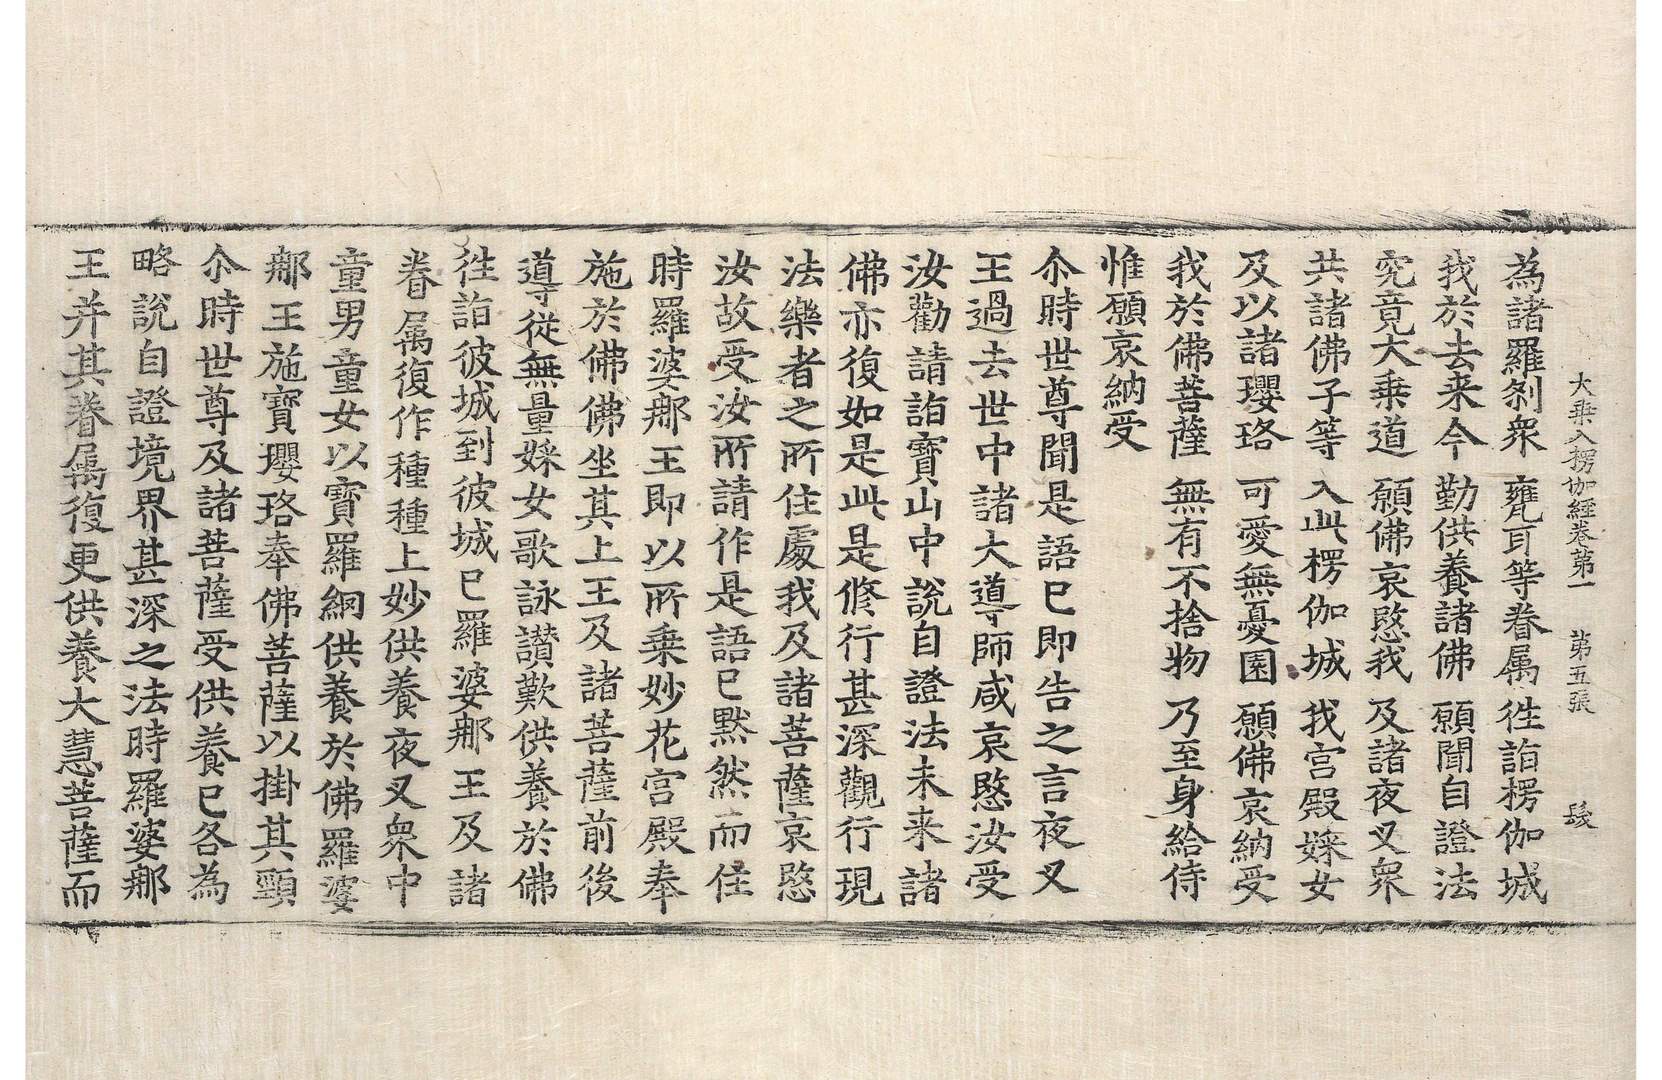 大乗入楞伽經卷第一　第五張　髮
為諸羅刹衆　甕耳等眷属　徃詣楞伽城
我於去来今　勤供養諸佛　願聞自證法
究竟大乗道　願佛哀愍我　及諸夜叉衆
共諸佛子等　入此楞伽城　我宫殿婇女
及以諸瓔珞　可愛無憂園　願佛哀納受
我於佛菩薩　無有不捨物　乃至身給侍
惟願哀納受
尒時世尊聞是語巳即告之言夜叉
王過去世中諸大導師咸哀愍汝受
汝勸請詣寶山中說自證法未来諸
佛亦復如是此是修行甚深觀行現
法樂者之所住處我及諸菩薩哀愍
汝故受汝所請作是語巳默然而住
時羅婆𨚗王即以所乗妙花宫殿奉
施於佛佛坐其上王及諸菩薩前後
導從無量婇女歌詠讃歎供養於佛
徃詣彼城到彼城巳羅婆𨚗王及諸
眷属復作種種上妙供養夜叉衆中
童男童女以寶羅網供養於佛羅婆
𨚗王施寶瓔珞奉佛菩薩以掛其頸
尒時世尊及諸菩薩受供養巳各為
略說自證境界甚深之法時羅婆𨚗
王并其眷属復更供養大慧菩薩而